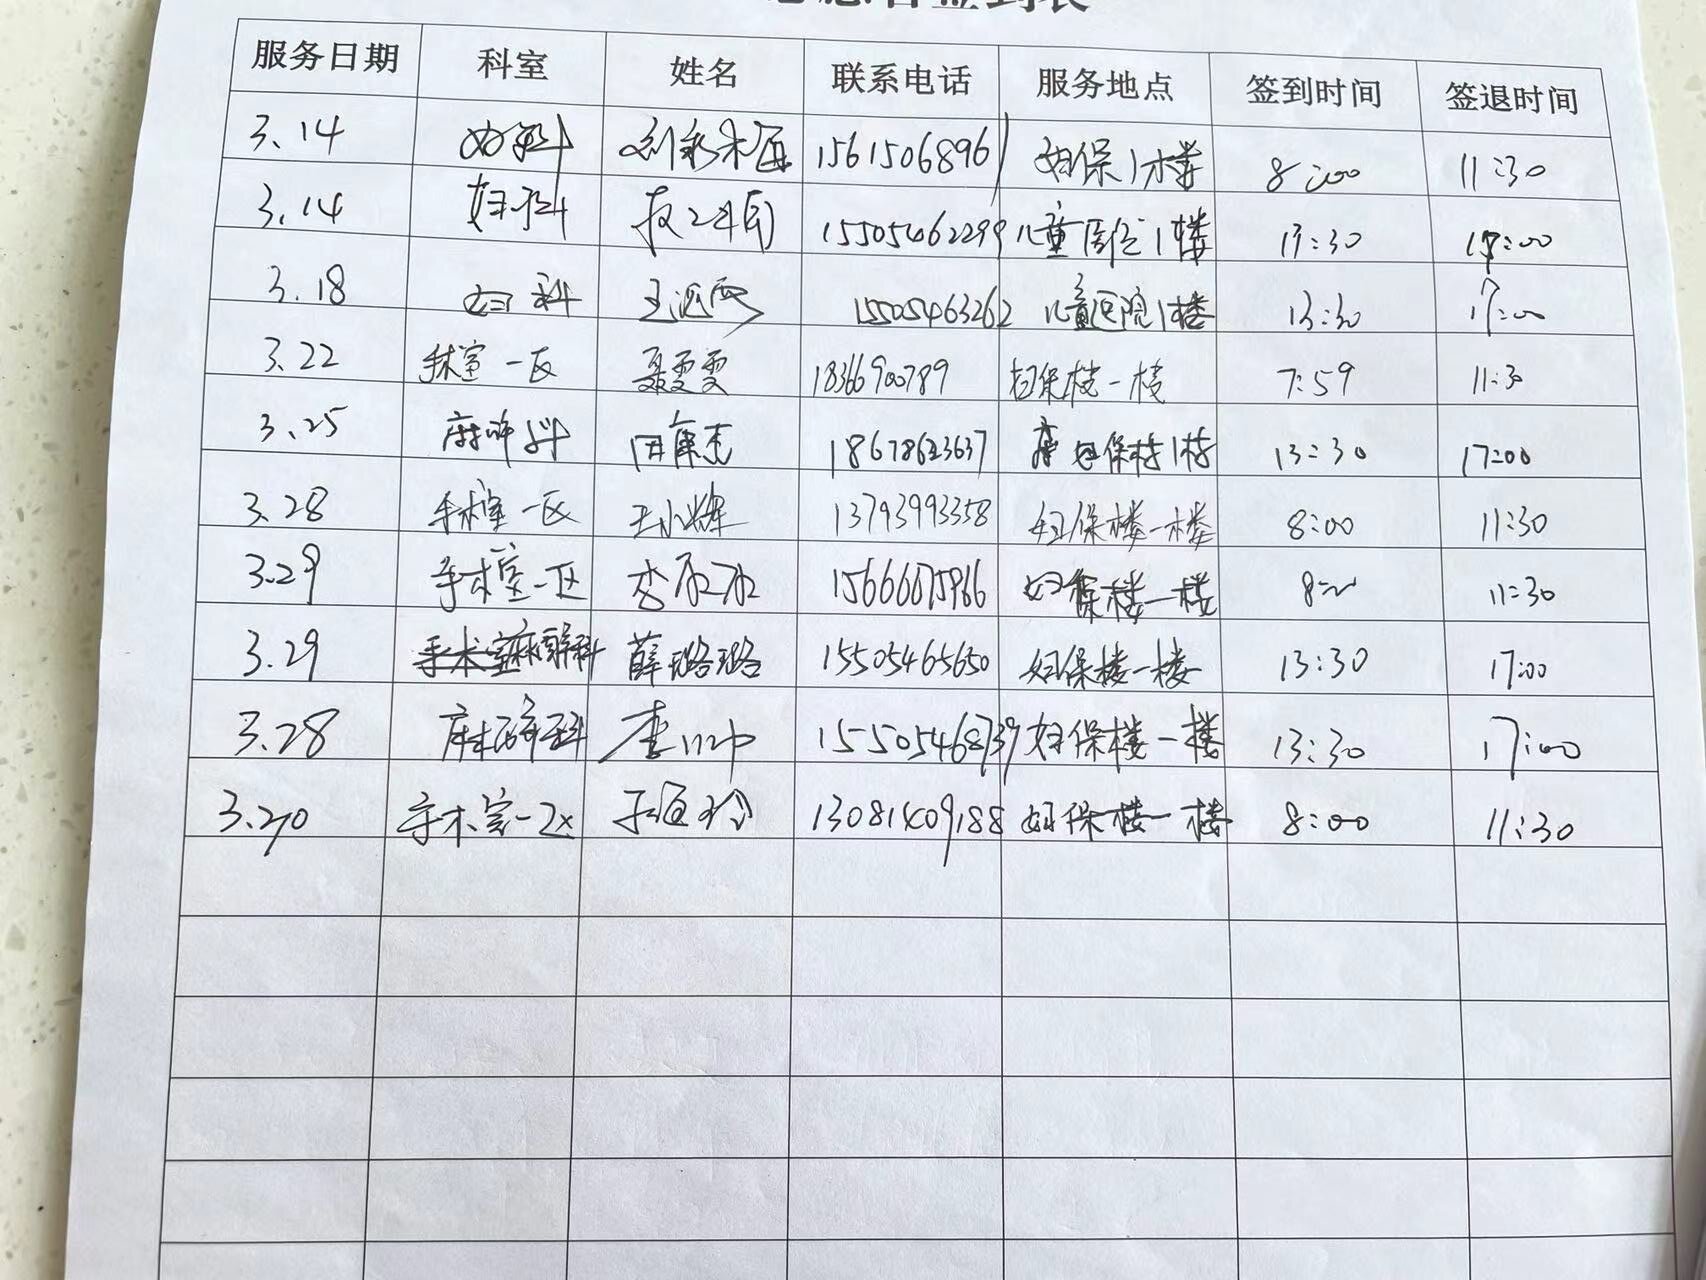 服务日期 科室 姓名 联系电话 服务地点 签到时间 签退时间
3.14 妇科 15615068961 妇保1楼 8:00 11:30
3.14 妇科 15505462299 儿童医院1楼 13:30 17:00
3.18 妇科 15505463262 儿童医院1楼 13:30 17:00
3.22 手术室一区 聂雯雯 18366900789 妇保楼一楼 7:59 11:30
3.25 麻醉科 18678623637 妇保楼1楼 13:30 17:00
3.28 手术室一区 王小辉 13793993358 妇保楼一楼 8:00 11:30
3.29 手术室一区 妇保楼一楼 8:00 11:30
3.29 麻醉科 薛璐璐 15505465650 妇保楼一楼 13:30 17:00
3.28 麻醉科 15505468739 妇保楼一楼 13:30 17:00
手术室一区 13081409188 妇保楼一楼 8:00 11:30